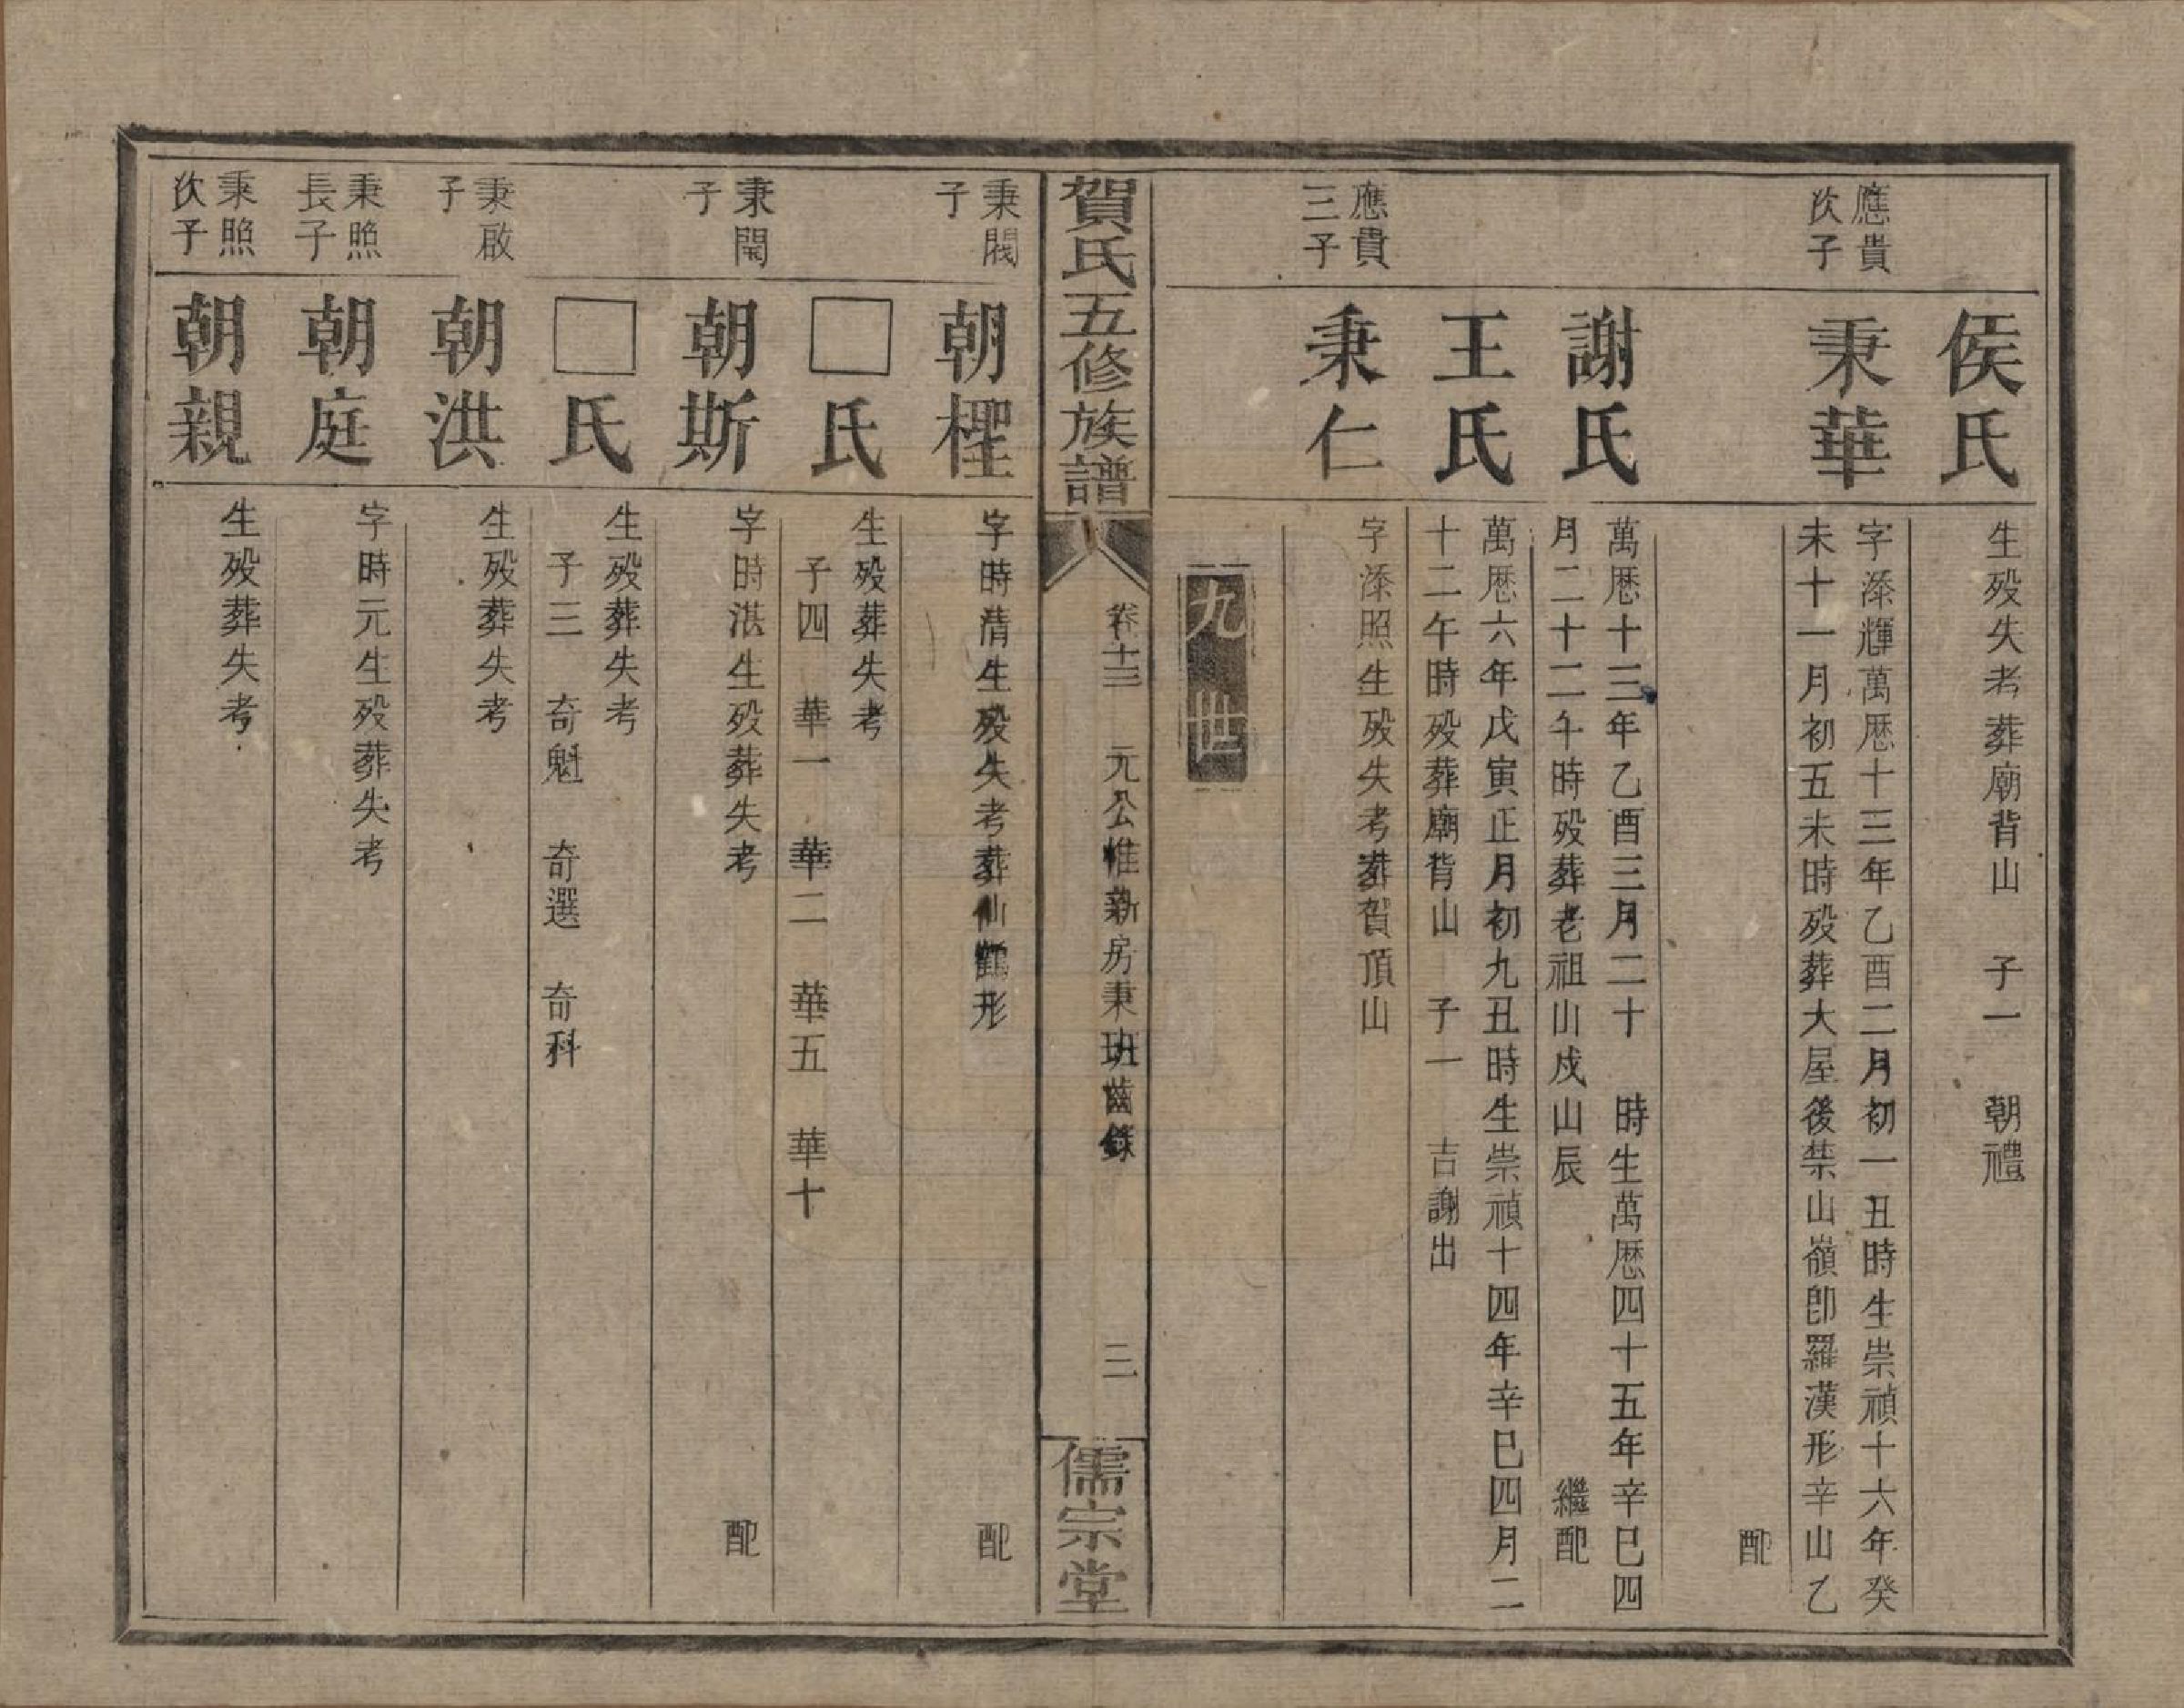 侯氏
生歿失考葬廟背山 子一 朝禮
應貴
次子
秉華
字漛輝萬厯十三年乙酉二月初一丑時生崇禎十六年癸
未十一月初五未時歿葬大屋後禁山嶺卽羅漢形辛山乙
配
謝氏
萬厯十三年乙酉三月二十 時生萬厯四十五年辛巳四
月二十二午時歿葬老祖山戍山辰 繼配
王氏
萬厯六年戊寅正月初九丑時生崇禎十四年辛巳四月二
十二午時歿葬廟背山 子一 吉謝出
應貴
三子
秉仁
字漛照生歿失考葬賀頂山
九世
賀氏五修族譜
卷十三 元公惟新房秉班齒錄 三
儒宗堂
秉閥
子
朝檉
字時清生歿失考葬仙鶴形 配
□氏
生歿葬失考
子四 華一 華二 華五 華十
秉閙
子
朝斯
字時湛生歿葬失考 配
□氏
生歿葬失考
子三 奇魁 奇選 奇科
秉啟
子
朝洪
生歿葬失考
秉照
長子
朝庭
字時元生歿葬失考
秉照
次子
朝親
生歿葬失考